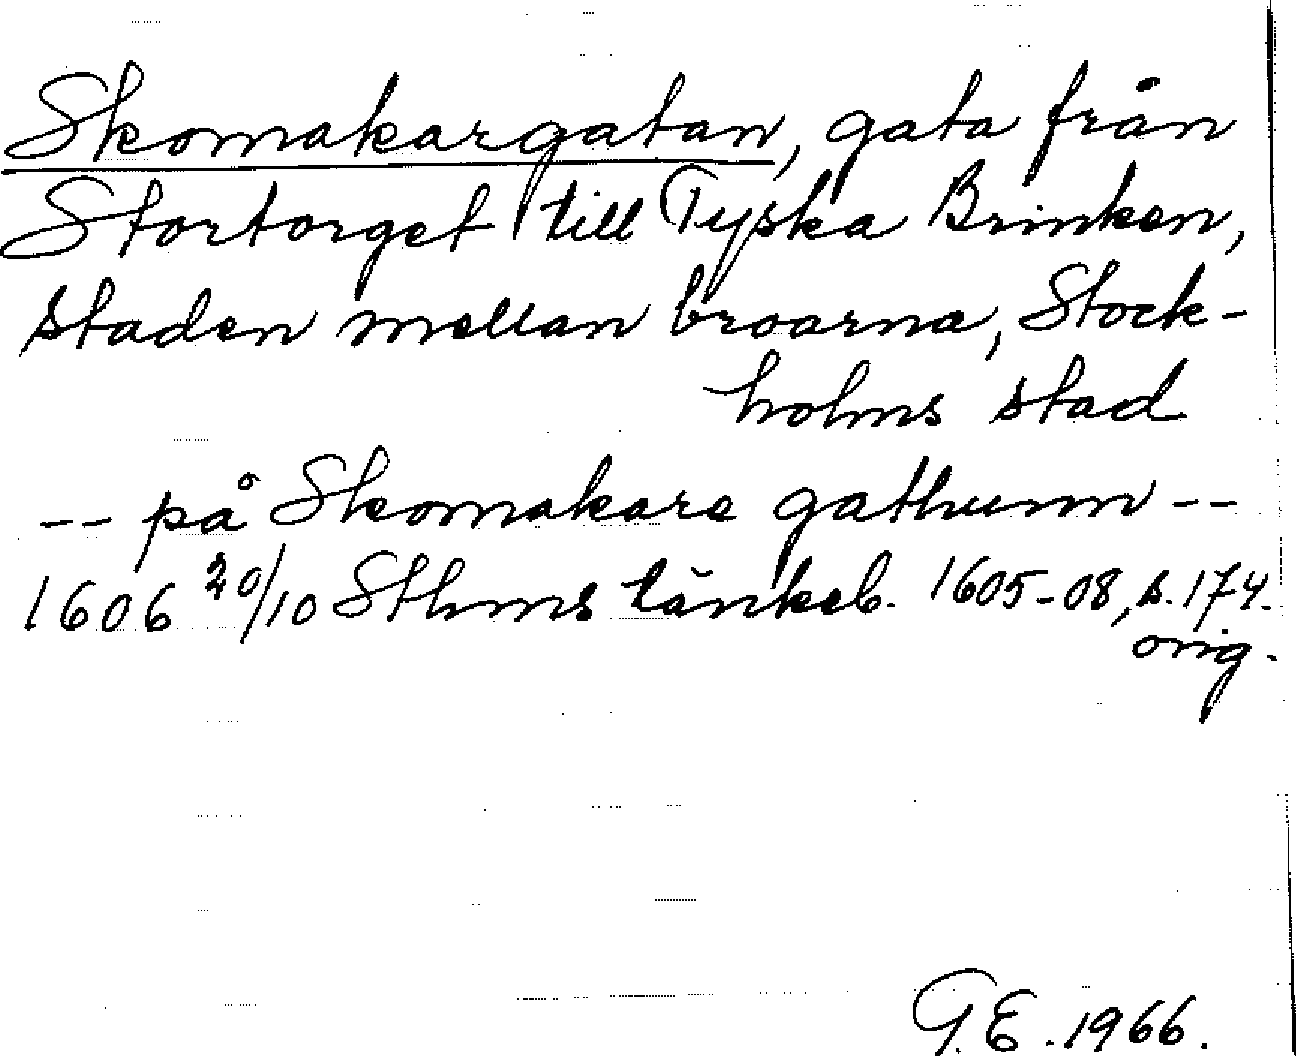 Skomakargatan, gata från
Stortorget till Tyska Brinken,
staden mellan broarna, Stock-
holms stad
-- på Skomakare gathunn --
1606 20/10 Sthms tänkeb. 1605-08, s. 174.
orig.
G.E. 1966.